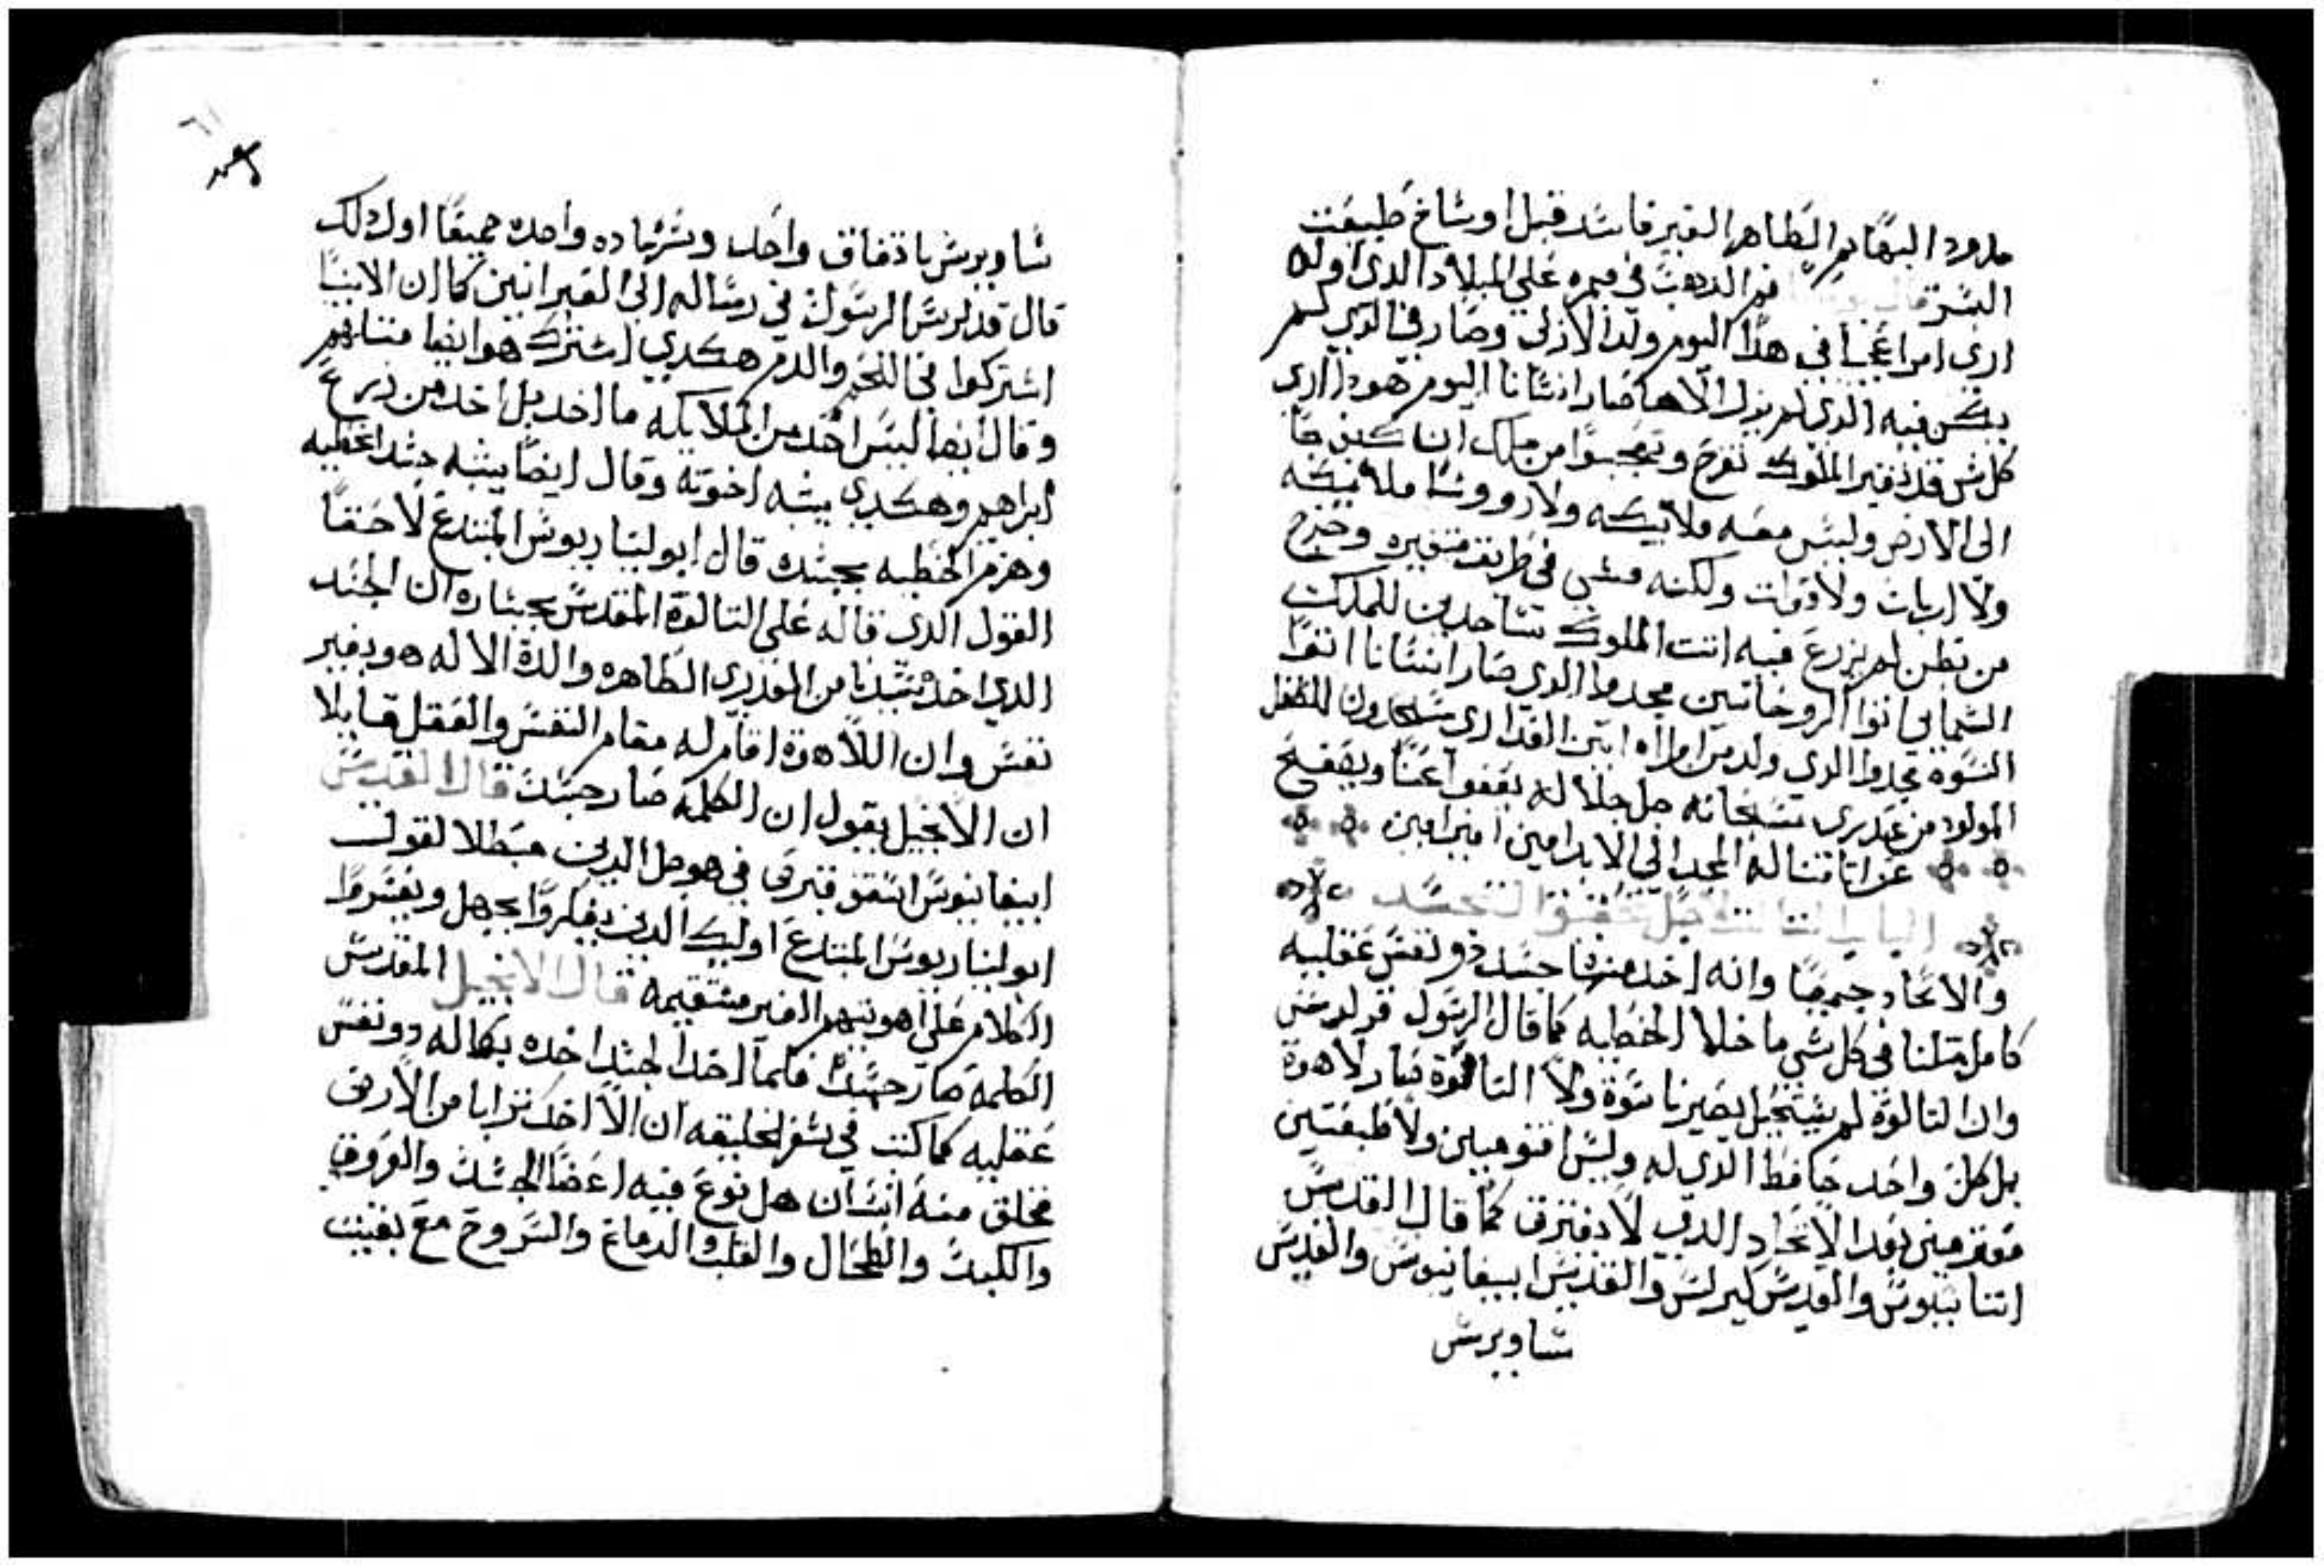 مدود البهايم الطاهر الغير فاسد قبل اوساخ طبيعت
البشر قال يوحنا فم الدهب في ميمره علي الميلاد الدي اوله
اري امرا عجبا في هدا اليوم ولد الازلي وصار في الدي لم
يكن فيه الدي لم يزل الاها صار انسانا اليوم هودا اري
كل شي قد تغير الملوك تفرح وتعجبوا من ملك ان كيف جا
الي الارض وليس معه ملايكه ولا رووسا ملايكه
ولا ارباب ولا قوات ولكنه مشي في طريق متغيره وخرج
من بطن لم يزرع فيه اتت الملوك ساجدين للملك
السمايي اتوا الروحانيين مجدوا الدي صار انسانا اتوا
النسوه مجدوا الدي ولد من امراه اتين العداري يسجدون للطفل
المولود من عدري سبحانه جل جلاله يغفر عنا ويصفح
عن اتامنا له المجد الي الابد امين امين امين
الباب التالت لاجل تحقيق التجسد
والاتحاد جميعا وانه اخد منها جسد دو نفس عقليه
كامل متلنا في كل شي ما خلا الخطيه كما قال الرسول قرلوس
وان التالوت لم يستحيل يصير ناسوة ولا التالوت صار لاهوة
بل كل واحد حافظ الدي له وليس اقنومين ولا طبيعتين
مفترقين بعد الاتحاد الدي لا يفترق كما قال القديس
اتناسيوس والقديس كيرلس والقديس ابيفانيوس والقديس
ساويرس
ساويرس باتفاق واحد وشهاده واحده جميعا اوليك
قال قدلوس الرسول في رساله الي العبرانيين كما ان الابنا
اشتركوا في اللحم والدم هكدي اشترك هو ايضا متلهم
وقال ايضا ليس احد من الملايكه ما اخد بل اخد من زرع
ابراهيم وهكدي يشبه اخوته وقال ايضا يشبه جسد الخطيه
وهزم الخطيه بجسده قال ابوليناريوس المبتدع لاحقا
القول الدي قاله علي التالوت المقدس بجساره ان الجسد
الدي اخده سيدنا من العدري الطاهره والدة الاله هو بغير
نفس وان اللاهوة اقام له مقام النفس والعقل قايلا
ان الانجيل يقول ان الكلمه صار جسد قال القديس
ابيفانيوس اسقف قبرص في هو حل الدين مبطلا لقول
ابوليناريوس المبتدع اوليك الدين يفكروا بجهل ويفسروا
الكلام علي اهويتهم الغير مستقيمه قال الانجيل المقدس
الكلمه صار جسدا فلما اخد الجسد اخده بكماله دو نفس
عقليه كما كتب في سفر الخليقه ان الله اخد ترابا من الارض
فخلق منه انسان هل نوع فيه اعضا الجسد والعروق
والكبد والطحال والقلب والدماغ والشروح مع بقيت